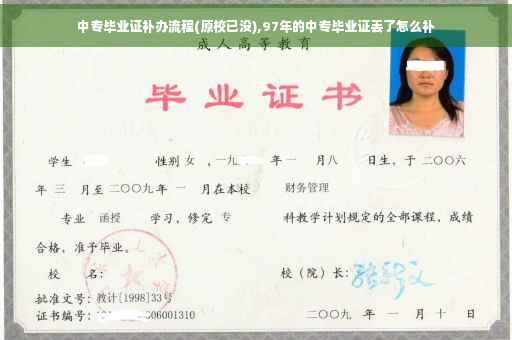 中专毕业证补办流程(原校已没),97年的中专毕业证丢了怎么补
成人高等教育
毕业证书
学生 性别 女 ,一九 年 一 月八 日生,于 二〇〇六
年 三 月至 二〇〇九年 一 月在本校 财务管理
专业 函授 学习,修完 专 科教学计划规定的全部课程,成绩
合格,准予毕业。
校 名: 校(院)长:
批准文号:教计[1998]33号
证书编号: 06001310 二〇〇九 年 一 月 十 日